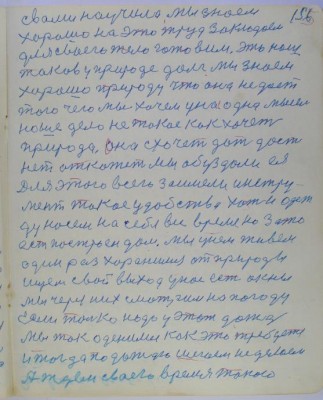 156
с вами научила. Мы знаем
хорошо на это труд заклюдаем
для своего тело готовим. Это наш
таков у природе долг. Мы знаем
хорошо природу что она не дает
того чего мы хочем у нас одна мысел
наше дело не такое как хочет
природа. Она схочет даст даст
нет откажет мы обуздали ея
Для этого всего зашиели инстру-
мент такое удобства хотя и одеж
ду носем на себя вы времено зато
ест построен дом. мы у нем живем
один раз хоранимся от природы
ищем свой выход у нас ест окны
мы через них смотрим на погоду
если только надо у этот дожд
мы так оденимси как это требуется
и тогда по дождю шагаем не думаем
А ждем своего время такого